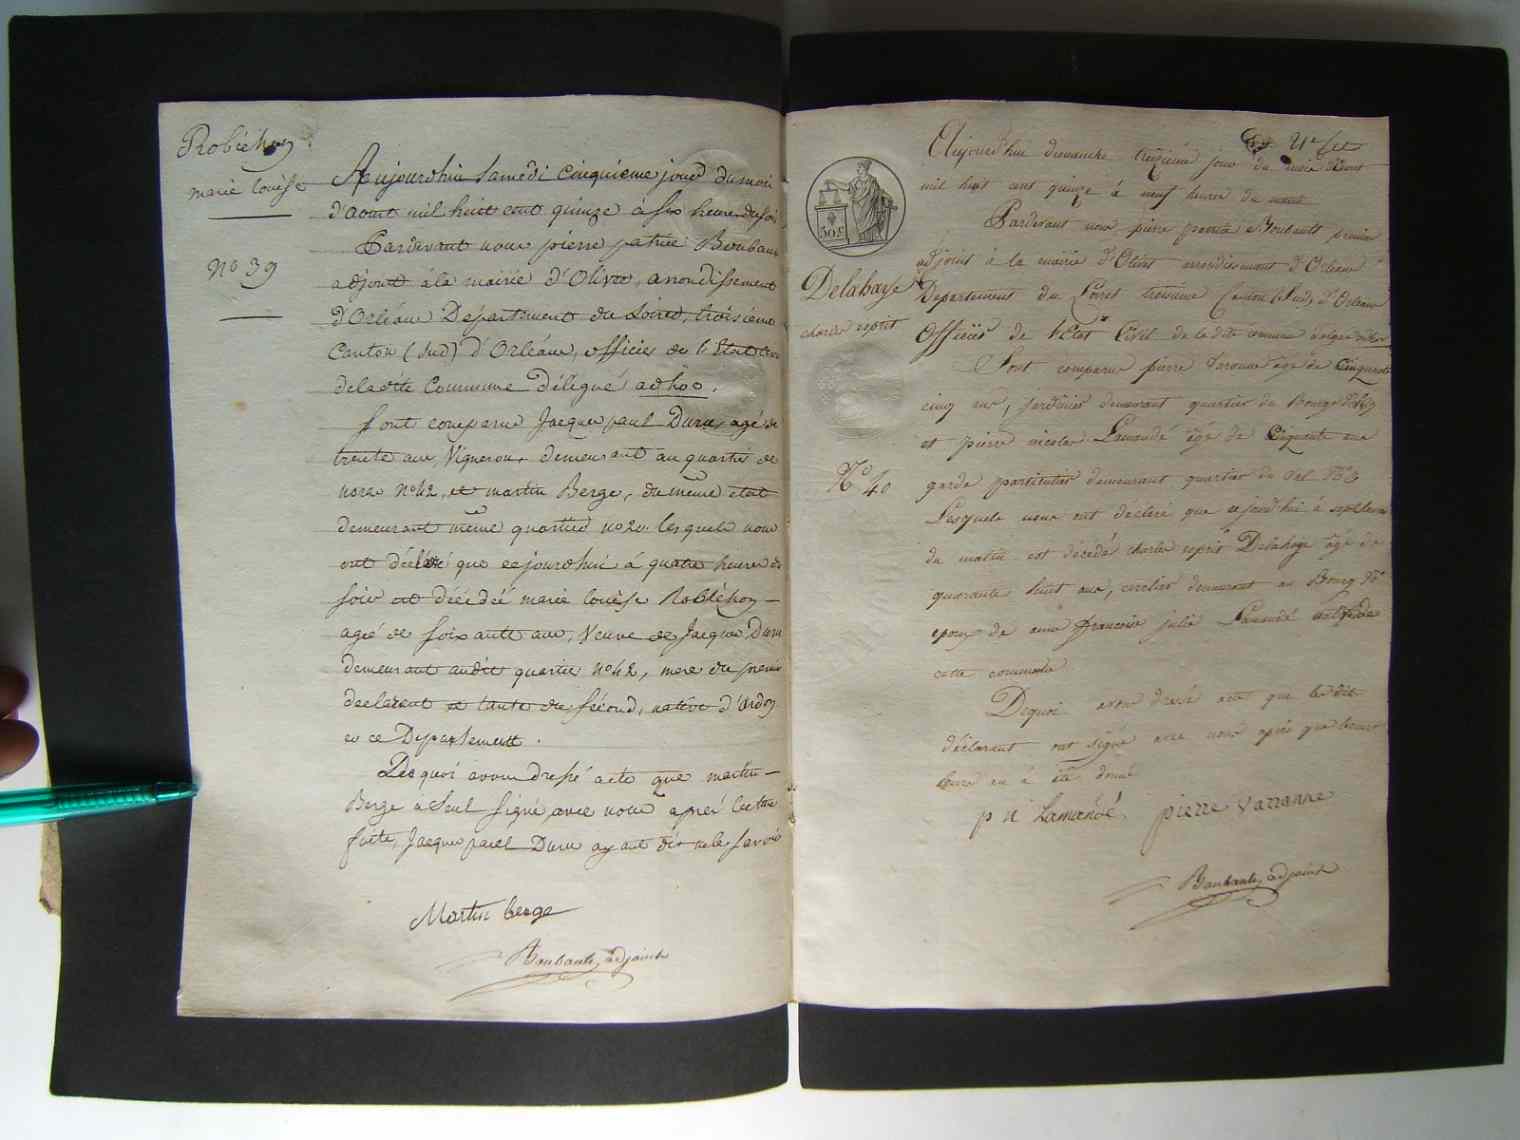 Robichon
marie louise
N° 39
Aujourdhui Samedi Cinquieme jour du mois
d'aoust mil huit cent quinze à six heures du soir
Pardevant nous pierre patrice Boubault
adjoint à la mairie d'Olivet, arrondissement
d'Orléans Département du Loiret, troisieme
Canton (Sud) d'Orléans, officier de l'Etat Civil
de la dite Commune délégué ad hoc.
Sont comparus Jacque paul Duru, agé de
trente ans, Vigneron, demeurant au quartier de
n° 42, et martin Berge, du même état
demeurant même quartier n° 20 lesquels nous
ont déclaré que cejourdhui à quatre heures du
soir est décédée marie louise Robichon
agée de soixante ans, Veuve de Jacque Duru
demeurant audit quartier n° 42, mere du premier
declarant et tante du sécond, native d'Ardon
en ce Departement.
Des quoi avons dressé acte que martin
Berge a seul signé avec nous aprés lecture
faite, Jacque paul Duru ayant dit ne le savoir
Martin berge
Boubault, adjoint
30 c
Delahaye
charles esprit
N° 40
Aujourd'hui dimanche treizieme jour du mois d'Aout
mil huit cent quinze à neuf heures du matin
Pardevant nous pierre patrice Boubault premier
adjoint à la mairie d'Olivet arrondissement d'Orleans
Departement du Loiret troisieme Canton (Sud) d'Orleans
Officier de l'Etat Civil de la dite commune
Sont comparus pierre Varanne agé de Cinquante
cinq ans, jardinier demeurant quartier du Bourg
et pierre nicolas Lamandé agé de Cinquante ans
garde particulier demeurant quartier du Val
Lesquels nous ont déclaré que cejourdhui à sept heures
du matin est décédé charles esprit Delahaye agé de
quarante huit ans, cerclier demeurant au Bourg
epoux de anne francoise julie Lamandé
cette commune
Dequoi avons dressé acte que les dits
déclarant ont signé avec nous après que lecture
leur en à été donné
p n Lamandé pierre varanne
Boubault, adjoint